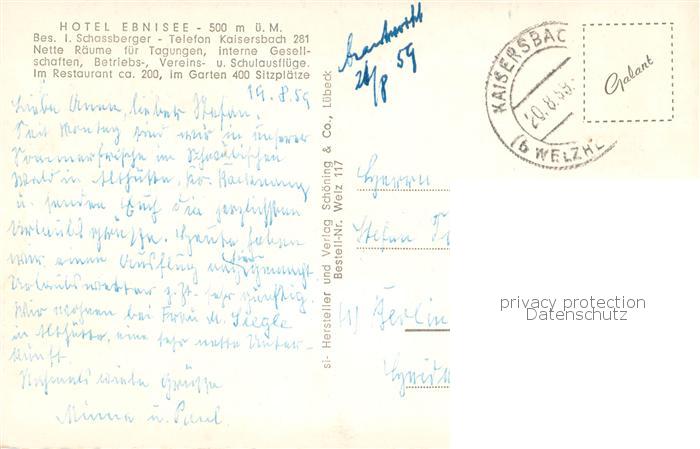 HOTEL EBNISEE - 500 m ü. M.
Bes. I. Schassberger - Telefon Kaisersbach 281
Nette Räume für Tagungen, interne Gesell-
schaften, Betriebs-, Vereins- u. Schulausflüge.
Im Restaurant ca. 200, im Garten 400 Sitzplätze
19.8.59
Liebe Anna, lieber Stefan,
Seit Montag sind wir in unserer
Sommerfrische im Schwäbischen
Wald in Althütte, Kr. Backnang
u. senden Euch die herzlichsten
Urlaubsgrüsse. Heute haben
wir einen Ausflug gemacht
Urlaubswetter z.Zt. sehr günstig.
Wir wohnen bei Frau M. Siegle
in Althütte, eine sehr nette Unter-
kunft.
Nochmals viele Grüsse
Minna u. Paul
beantwortet
26/8 59
si- Hersteller und Verlag Schöning & Co., Lübeck
Bestell-Nr. Welz 117
KAISERSBAC
20.8.59
WELZH
Galant
Herrn
Stefan
Berlin
privacy protection
Datenschutz